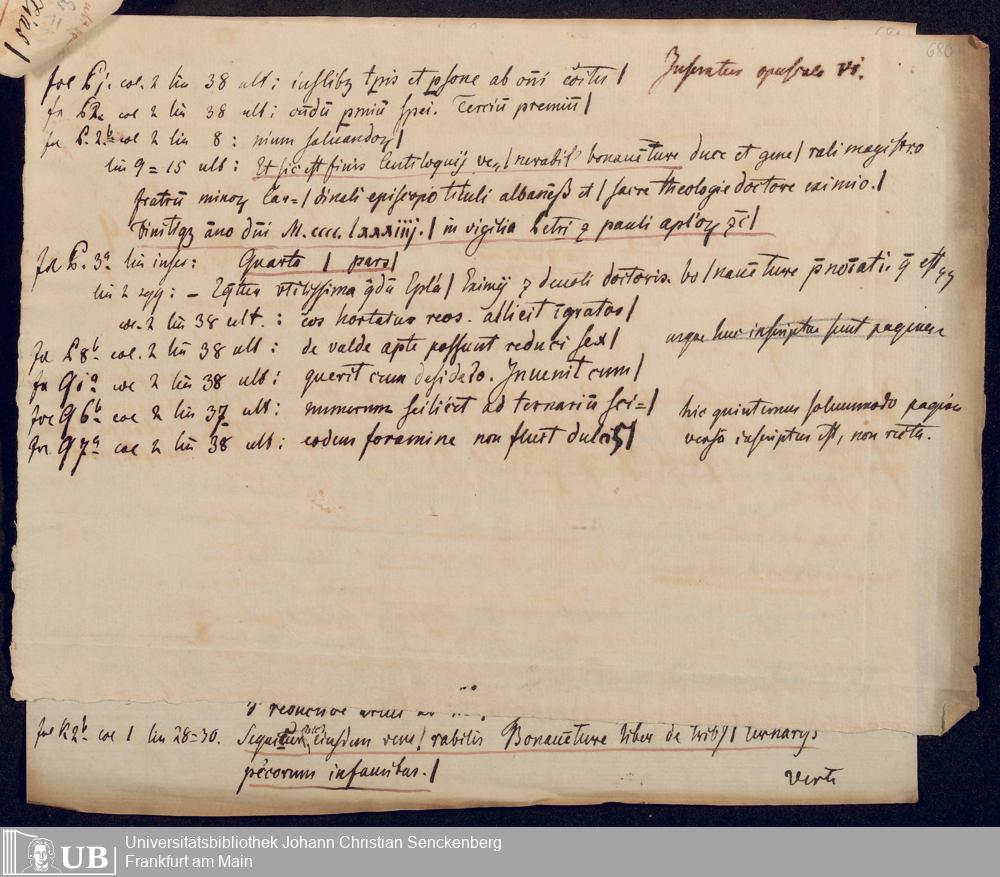 680
fol P j. col. 2 lin 38 ult: iuslibꝫ tp̄is et ꝑsone ab om̄i cōitus / Inseratur opuscula vi.
fol P2 col 2 lin 38 ult: cūdū p̄miū spei. Terciū premiū /
fol P. 2.b col 2 lin 8: nium saluandoꝝ /
lin 9 = 15 ult: Et sic est finis Centiloquij ve / nerabil' bonauēture duce et gene / rali magistro
fratrū minoꝝ Car= / dinali episcopo tituli albanēsꝭ et / sacre theologie doctore eximio. /
Finitꝙ āno dn̄i M.cccc. / lxxxiiij. / in vigilia Petri ⁊ pauli apl'oꝝ ⁊c̄ /
fol P. 3a lin infer: Quarta / pars /
lin 2 sqq: Eximij ⁊ deuoti doctoris bo / nauēture
col. 2 lin 38 ult.: eos hortatur reos. allicit īgratos /
fol P 8b col. 2 lin 38 ult: de valde apte possunt reduci sex / usque huc inscriptae sunt paginae
fol Q1a col 2 lin 38 ult: querit cum desiderio. Inuenit cum /
fol Q 6b col 2 lin 37 ult: numerum scilicet ad ternariū sci= / hic quinternus solummodo pagina
fol Q 7a col 2 lin 38 ult: eodem foramine non fluit dulcis / versa inscriptus est, non recta.
fol R 2b col 1 lin 28=30. Sequitur eiusdem vene / rabilis Bonauēture liber de tribꝰ / ternarijs
pēcorum infamibus. /
verte
UB
Universitätsbibliothek Johann Christian Senckenberg
Frankfurt am Main